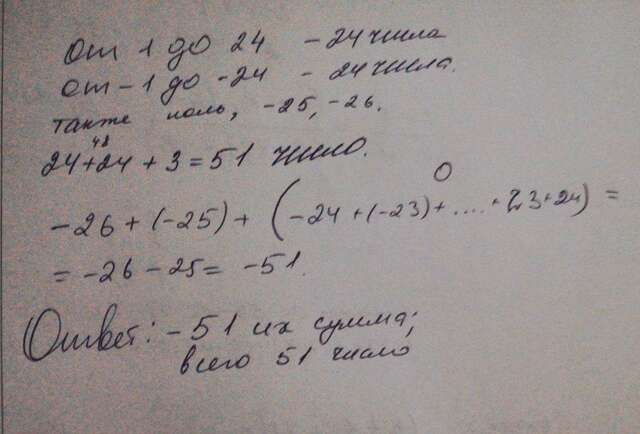 От 1 до 24 - 24 числа
от -1 до -24 - 24 числа.
также ноль, -25, -26.
48
24+24 + 3 = 51 число.
0
-26 + (-25) + (-24 + (-23) + .... + 23 + 24) =
= -26 - 25 = -51.
Ответ: -51 их сумма;
всего 51 число